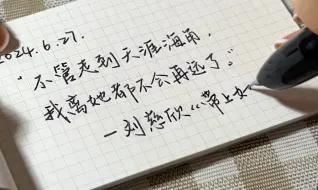 2024.6.27.
"不管走到天涯海角,
我离她都不会再远了。"
—刘慈欣《带上她